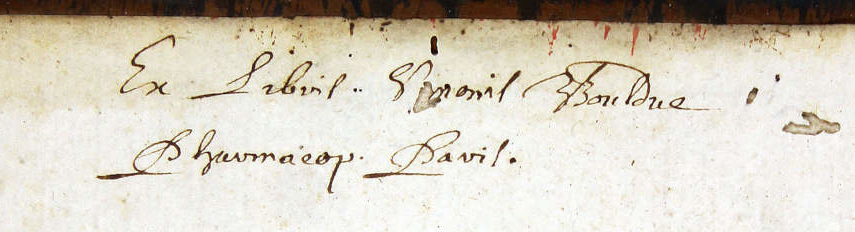 Ex Libris Simonis Boulduc
Pharmacop. Paris.